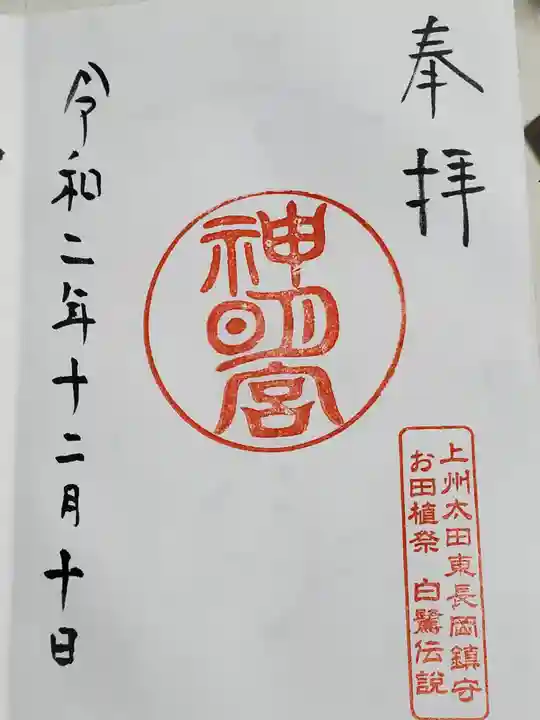 奉拝
神明宮
上州太田東長岡鎮守
お田植祭 白鷺伝説
令和二年十二月十日